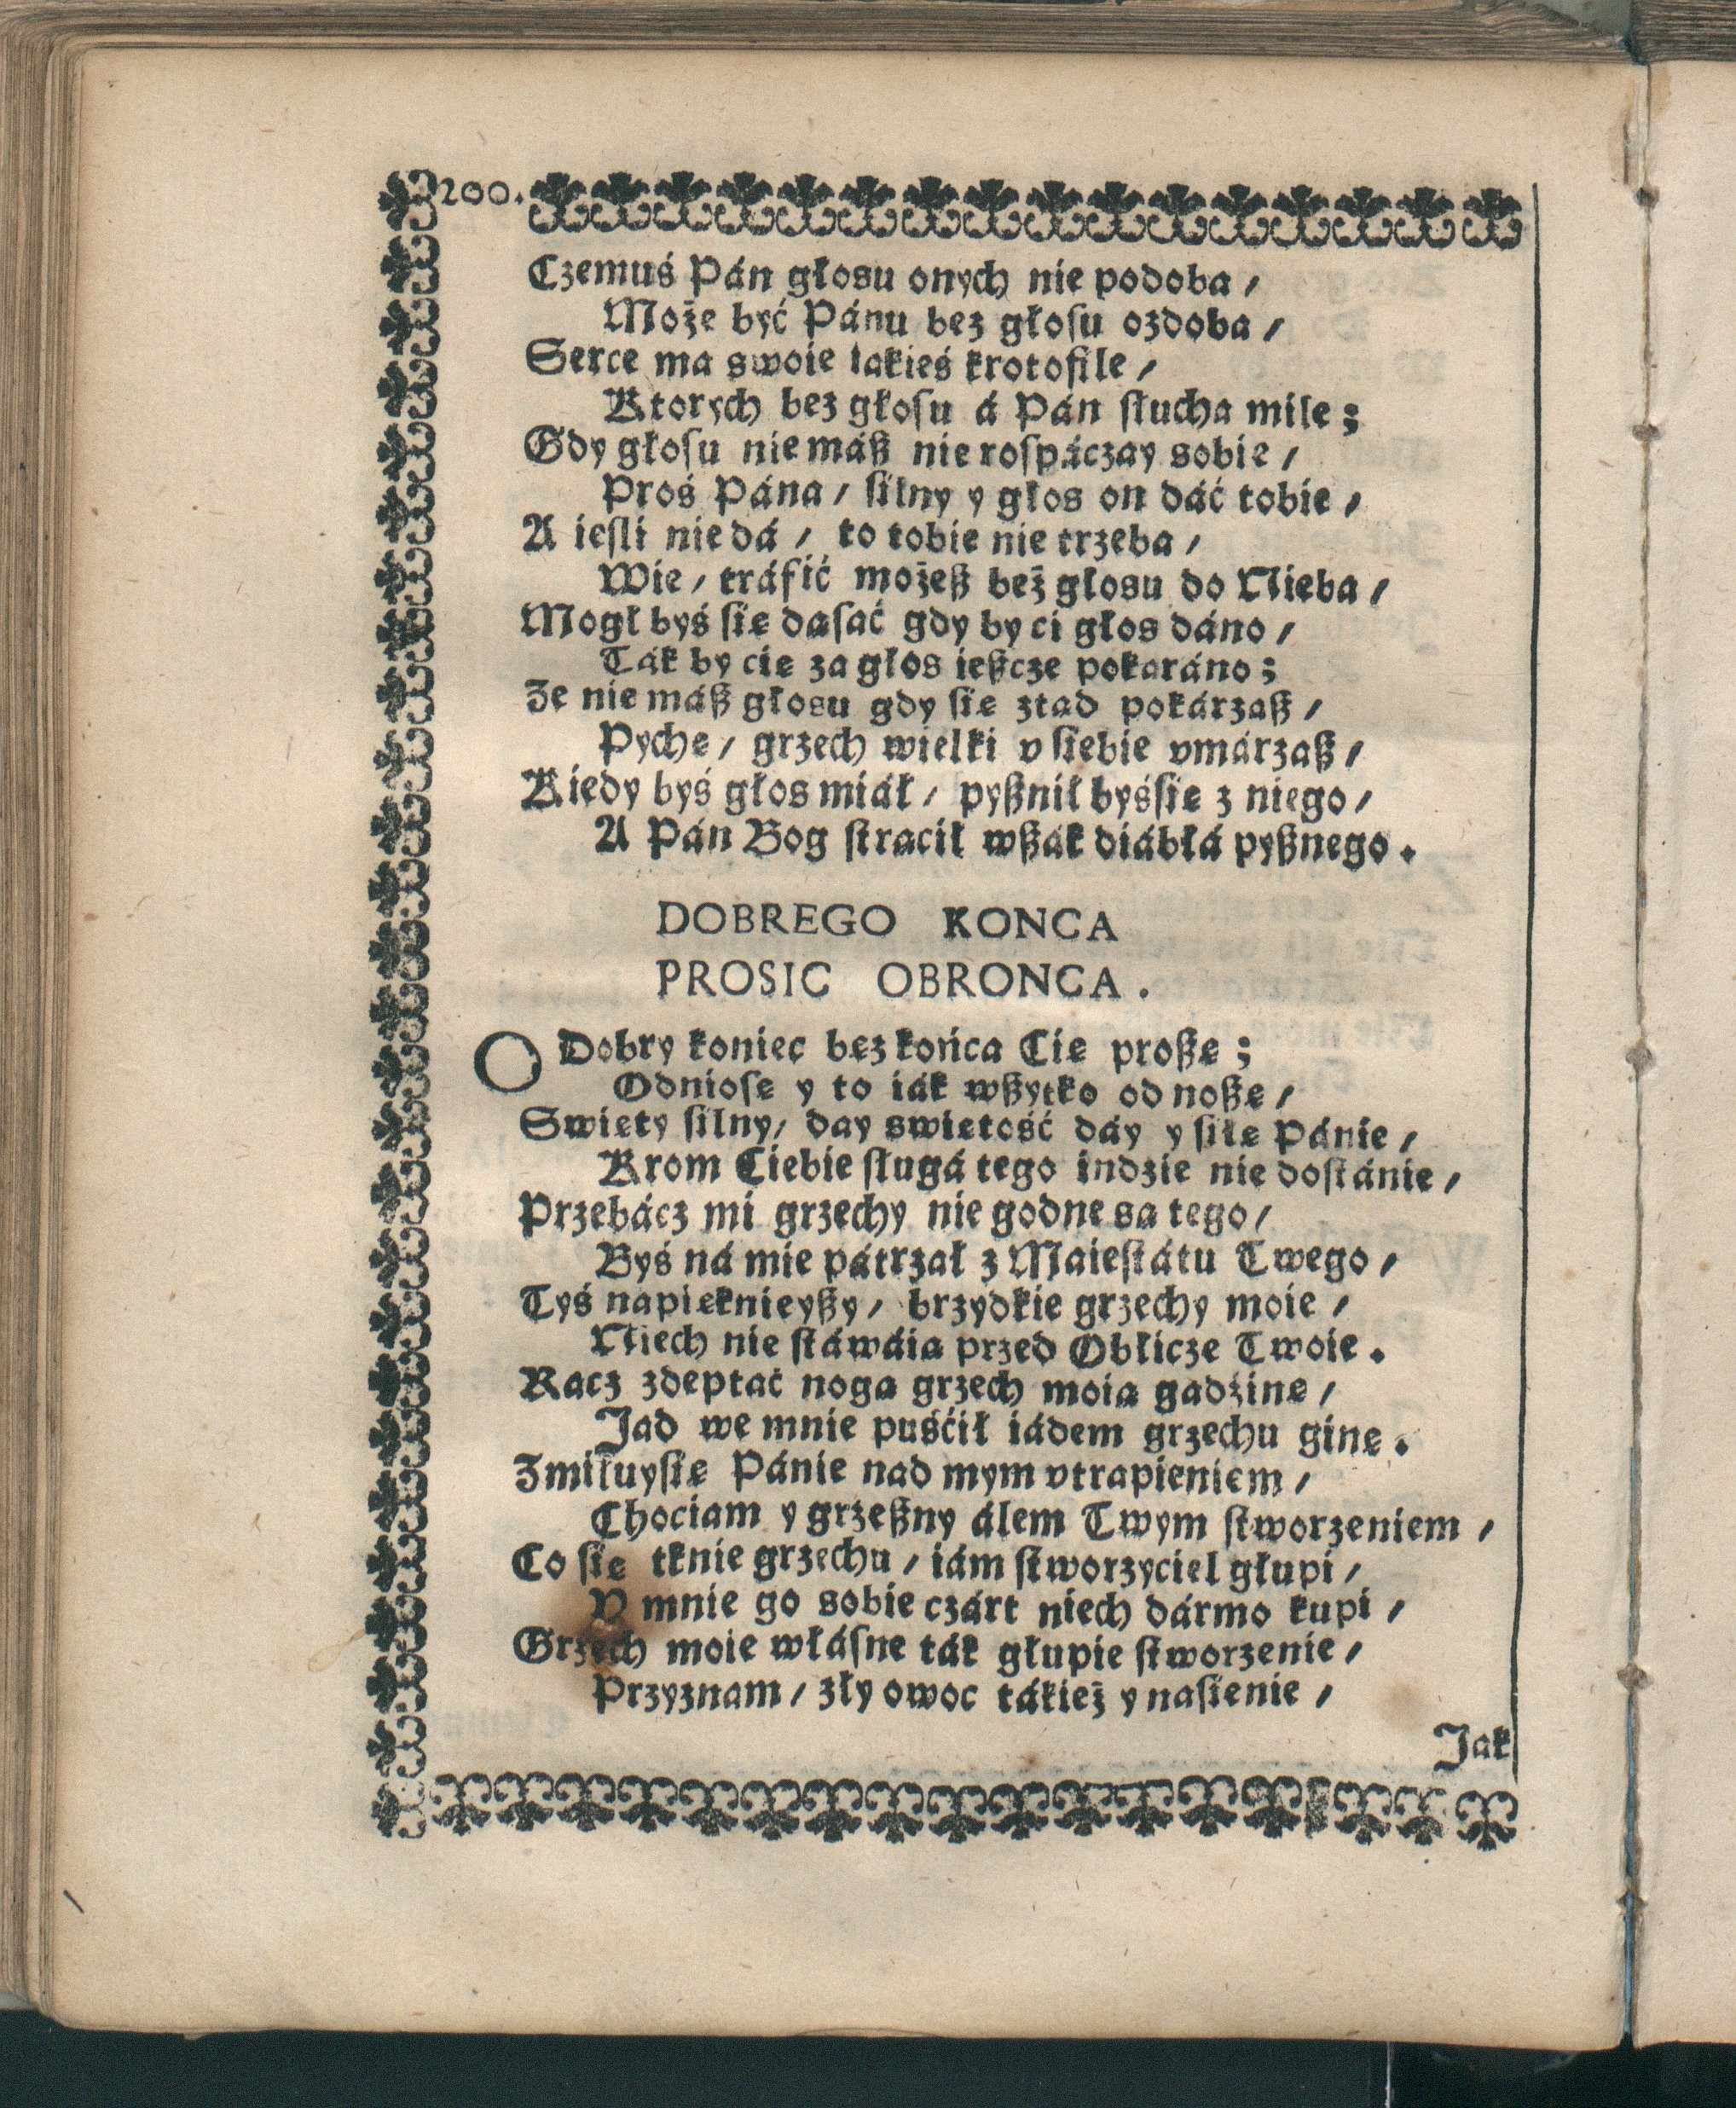 200.
Czemuś Pán głosu onych nie podoba /
Może być Pánu bez głoſu ozdoba /
Serce ma swoie iakieś krotofile /
Ktorych bez głoſu á Pán ſłucha mile ;
Gdy głoſu nie máß nie roſpáczay sobie /
Proś Pána / ſilny y głos on dáć tobie /
A ieſli nie dá / to tobie nie trzeba /
Wie / tráfić możeß beż głosu do Nieba /
Mogł byś ſię daſać gdy by ci głos dáno /
Ták by cię za głos ießcze pokaráno ;
Że nie máß głosu gdy ſię ztad pokárzaß /
Pychę / grzech wielki v ſiebie vmárzaß /
Kiedy byś głos miáł / pyßnił byśſię z niego /
A Pán Bog ſtracił wßák diábłá pyßnego .
DOBREGO KONCA
PROSIC OBRONCA .
O Dobry koniec bez końca Cię proßę ;
Odnioſę y to iák wßytko od noßę /
Swięty ſilny / day swiętość dáy y ſiłę Pánie /
Krom Ciebie ſługá tego indzie nie doſtánie /
Przebácz mi grzechy nie godne sa tego /
Byś ná mie pátrzał z Maieſtátu Twego /
Tyś napięknieyßy / brzydkie grzechy moie /
Niech nie ſtáwáia przed Oblicze Twoie .
Racz zdeptać noga grzech moia gadzinę /
Jad we mnie puśćił iádem grzechu ginę .
Zmiłuyſię Pánie nad mym vtrapieniem /
Chociam y grzeßny álem Twym ſtworzeniem /
Co ſię tknie grzechu / iám ſtworzyciel głupi /
V mnie go sobie czárt niech dármo kupi /
Grzech moie włáſne ták głupie ſtworzenie /
Przyznam / zły owoc tákież y naſienie /
Jak